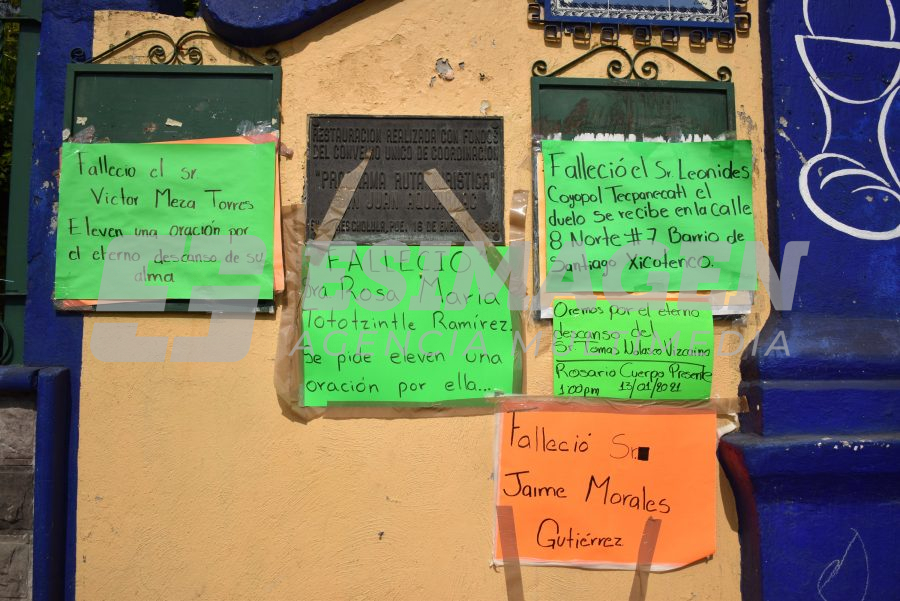 Fallecio el Sr.
Victor Meza Torres
Eleven una oración por
el eterno descanso de su
alma
RESTAURACION REALIZADA CON FONDOS
DEL CONVENIO UNICO DE COORDINACION
"PROGRAMA RUTA
JUAN
FALLECIO
Sra Rosa Maria
Tototzintle Ramírez.
Se pide eleven una
oración por ella...
Falleció el Sr Leonides
Coyopol Tecpanecatl el
duelo Se recibe en la Calle
8 Norte #7 Barrio de
Santiago Xicotenco.
Oremos por el eterno
descanso del
Sr. Tomas Nolasco Vizcaino
Rosario Cuerpo Presente
1:00 pm 13/01/2021
Falleció Sr.
Jaime Morales
Gutiérrez
ESIMAGEN
AGENCIA MULTIMEDIA